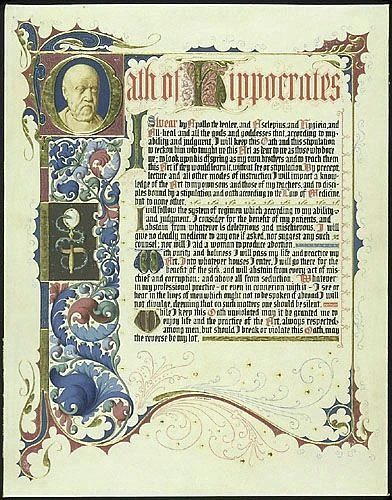 Oath of Hippocrates
I Swear by Apollo the healer, and Asclepius, and Hygieia, and
All-heal and all the gods and goddesses that, according to my
ability and judgment, I will keep this Oath and this stipulation
to reckon him who taught me this Art as dear to me as those who bore
me; to look upon his offspring as my own brothers and to teach them
this Art if they would learn it, without fee or stipulation. By precept,
lecture and all other modes of instruction I will impart a know-
ledge of the Art to my own sons and those of my teachers, and to disci-
ples bound by a stipulation and oath according to the Law of Medicine,
but to none other.
I will follow the system of regimen which according to my ability
and judgment, I consider for the benefit of my patients, and
abstain from whatever is deleterious and mischievous. I will
give no deadly medicine to any one if asked, nor suggest any such
counsel; nor will I aid a woman to produce abortion.
With purity and holiness I will pass my life and practice my
Art. Into whatever houses I enter, I will go there for the
benefit of the sick, and will abstain from every act of mis-
chief and corruption; and above all from seduction. Whatever
in my professional practice - or even in connexion with it - I see or
hear in the lives of men which ought not to be spoken of abroad I will
not divulge, deeming that on such matters one should be silent.
While I keep this Oath unviolated may it be granted me to
enjoy life and the practice of the Art, always respected
among men, but should I break or violate this Oath, may
the reverse be my lot.